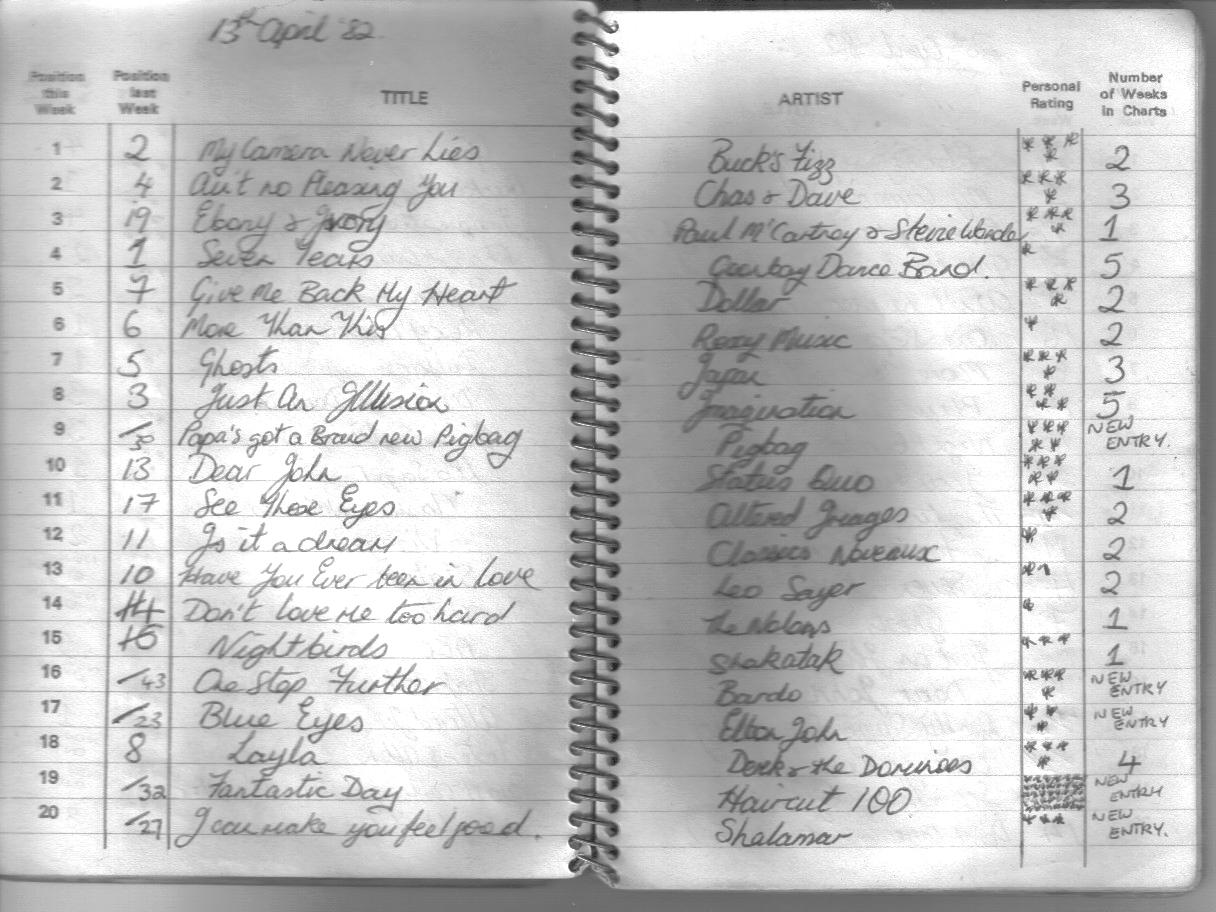 13th April '82
Position this Week Position last Week TITLE ARTIST Personal Rating Number of Weeks in Charts
1 2 My Camera Never Lies Buck's Fizz **** 2
2 4 Ain't no Pleasing You Chas & Dave **** 3
3 19 Ebony & Ivory Paul McCartney & Stevie Wonder **** 1
4 1 Seven Tears Goombay Dance Band. * 5
5 7 Give Me Back My Heart Dollar **** 2
6 6 More Than This Roxy Music * 2
7 5 Ghosts Japan **** 3
8 3 Just An Illusion Imagination **** 5
9 /30 Papa's got a Brand new Pigbag Pigbag ***** NEW ENTRY.
10 13 Dear John Status Quo ***** 1
11 17 See Those Eyes Altered Images **** 2
12 11 Is it a dream Classics Noveaux * 2
13 10 Have You Ever been in love Leo Sayer 2
14 14 Don't love me too hard The Nolans * 1
15 16 Nightbirds Shakatak *** 1
16 /43 One Step Further Bardo **** NEW ENTRY
17 /23 Blue Eyes Elton John *** NEW ENTRY
18 8 Layla Derek & the Dominoes **** 4
19 /32 Fantastic Day Haircut 100 NEW ENTRY
20 /27 I can make you feel good. Shalamar *** NEW ENTRY.